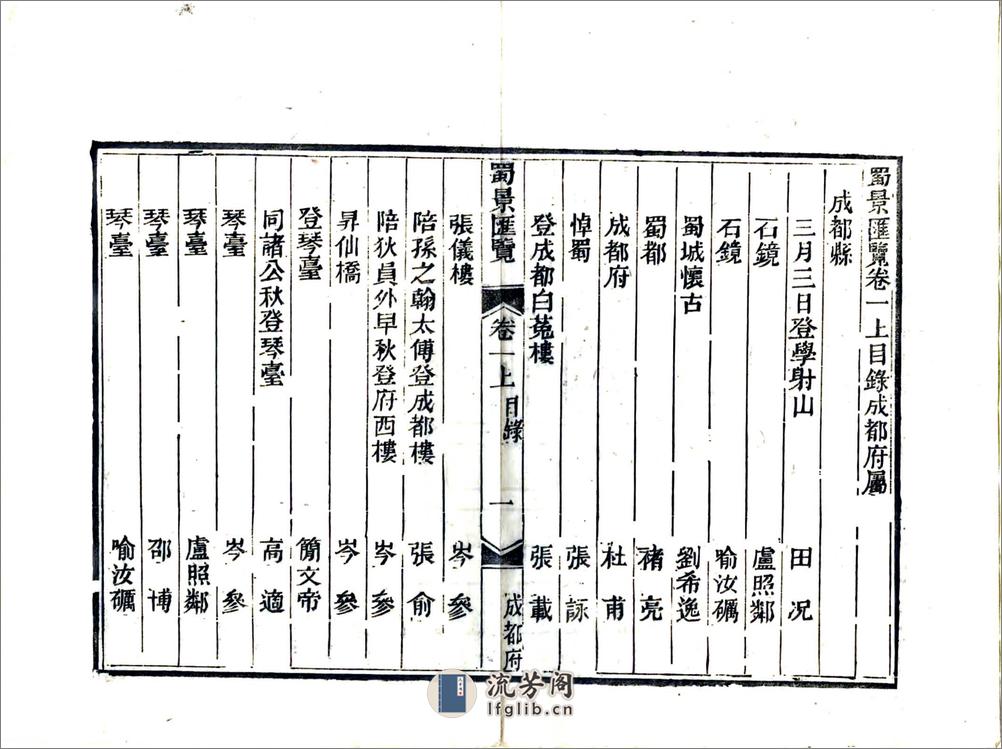 蜀景匯覽卷一上目錄成都府屬
成都縣
三月三日登學射山 田况
石鏡 盧照鄰
石鏡 喻汝礪
蜀城懷古 劉希逸
蜀都 褚亮
成都府 杜甫
悼蜀 張詠
登成都白菟樓 張載
蜀景匯覽 卷一上 目錄 一 成都府
張儀樓 岑參
陪孫之翰太傅登成都樓 張俞
陪狄員外早秋登府西樓 岑參
昇仙橋 岑參
登琴臺 簡文帝
同諸公秋登琴臺 高適
琴臺 岑參
琴臺 盧照鄰
琴臺 邵博
琴臺 喻汝礪
流芳阁
lfglib.cn